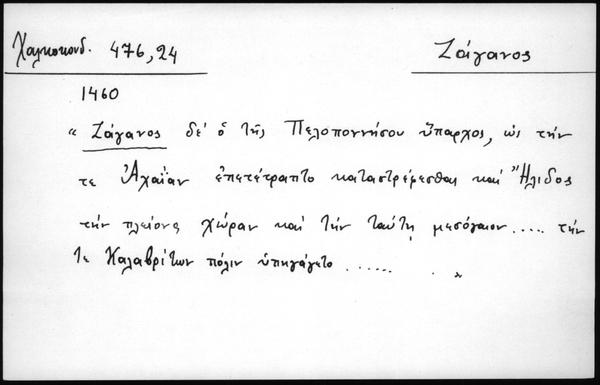 Χαλκοκονδ. 476,24
Ζάγανος
1460
« Ζάγανος δέ ὁ τῆς Πελοποννήσου ὕπαρχος, ὡς τήν
τε Ἀχαΐαν ἐπετέτραπτο καταστρέψεσθαι καί Ἤλιδος
τήν πλείονα χώραν καί τήν ταύτῃ μεσόγαιον ..... τήν
τε Καλαβρίτων πόλιν ὑπηγάγετο ...... . »